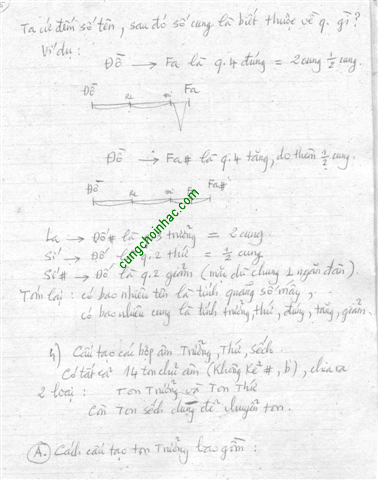 Ta cứ đếm số tên, sau đó số cung là biết thuộc về q. gì?
Ví dụ:
Đô → Fa là q.4 đúng = 2 cung 1/2 cung.
Đô Re mi Fa
Đô → Fa# là q.4 tăng, do thêm 1/2 cung.
Đô Re mi F Fa#
La → Đô# là trưởng = 2 cung
Si → Đô q.2 thứ = 1/2 cung
Si# → Đô là q.2 giảm (mặc dù chung 1 ngăn đàn).
Tóm lại: có bao nhiêu tên là tính quãng số mấy,
có bao nhiêu cung là tính trưởng, thứ, đúng, tăng, giảm.
4) Cấu tạo các hợp âm Trưởng, Thứ, Sếch
Có tất cả 14 ton chủ âm (không kể #, b), chia ra
2 loại: Ton Trưởng và Ton Thứ
Còn Ton Sếch dùng để chuyển ton.
A. Cách cấu tạo ton Trưởng bao gồm:
cungchoinhac.com